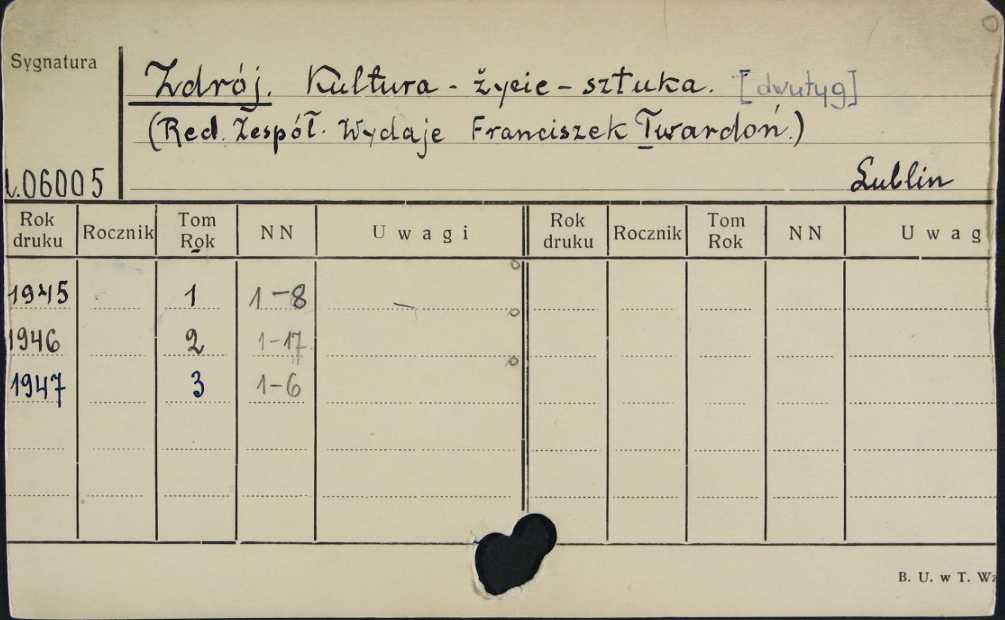 Sygnatura
Zdrój. Kultura - życie - sztuka. [dwutyg]
(Red. Zespół. Wydaje Franciszek Twardoń.)
06005
Lublin
Rok druku Rocznik Tom Rok NN Uwagi Rok druku Rocznik Tom Rok NN Uwag
1945 1 1-8 —
1946 2 1-17
1947 3 1-6
B. U. w T.